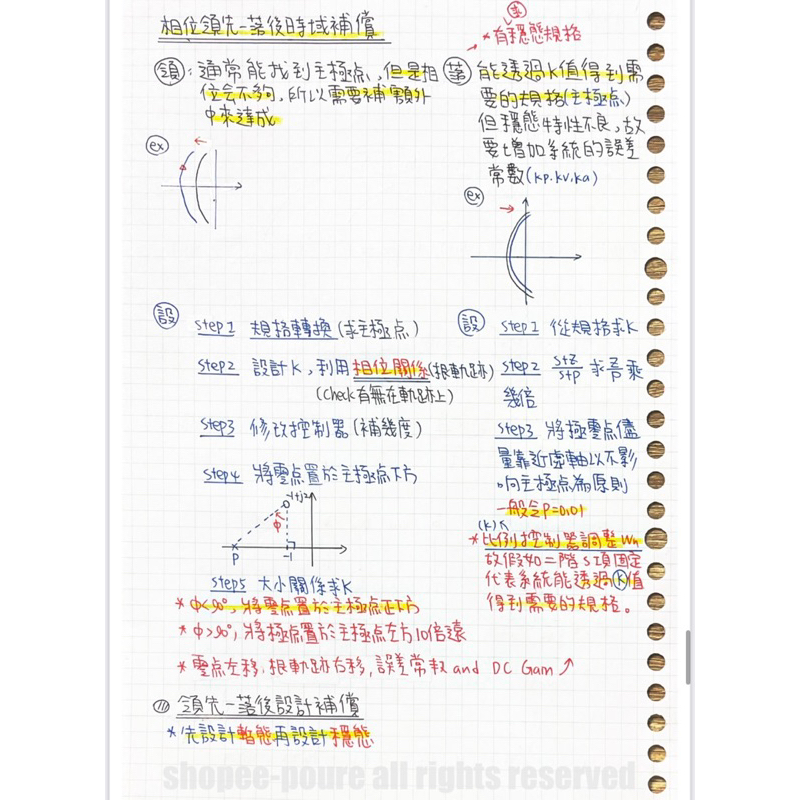 相位領先-落後時域補償
領:通常能找到主極点,但是相
位会不夠,所以需要補額外
中來達成
ex
落
*有穩態規格
落 能透過K值得到需
要的規格(主極点)
但穩態特性不良,故
要增加系統的誤差
常數(kp.kv.ka)
ex
設 step1 規格轉換(求主極点)
step2 設計K,利用相位關係(根軌跡)
(check有無在軌跡上)
step3 修改控制器(補幾度)
step4 將零点置於主極点下方
-1+j2
φ
P
-1
step5 大小關係求K
*φ<90°,將零点置於主極点正下方
*φ>90°,將極点置於主極点左方10倍遠
*零点左移,根軌跡右移,誤差常數and DC Gain↗
設 step1 從規格求K
step2 s+z/s+p 求 z/p 乘
幾倍
step3 將極零点儘
量靠近虛軸以不影
响主極点為原則
一般令P=0.01
(k)
*比例控制器調整Wn
故假如二階S項固定
代表系統能透過K值
得到需要的規格。
(三) 領先-落後設計補償
*先設計暫態再設計穩態
shopee-poure all rights reserved